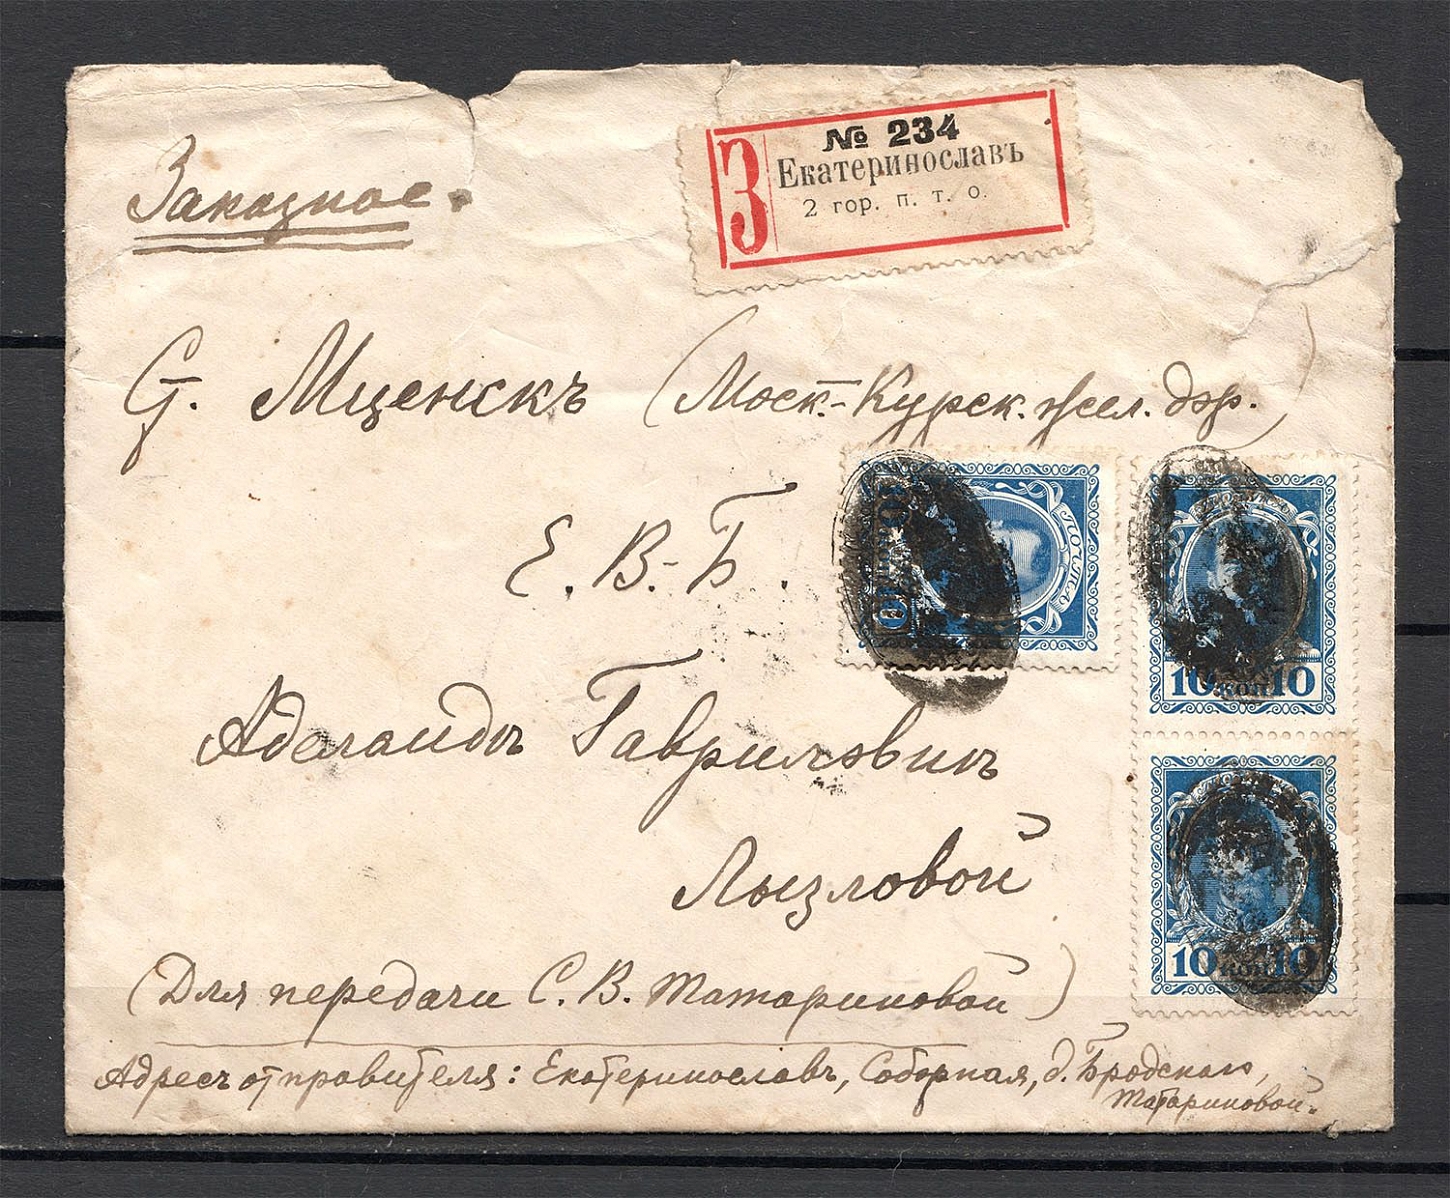 Заказное.
З
№ 234
Екатеринославъ
2 гор. п. т. о.
Г. Мценскъ (Моск.-Курск. жел. дор.)
Е. В.-Б.
Аделаидѣ Гавриловнѣ
Лызловой
(Для передачи С. В. Татариновой)
Адресъ отправителя: Екатеринославъ, Соборная, д. Бродскаго,
Татариновой.
ПОЧТА
10
10 коп 10
10 коп 10